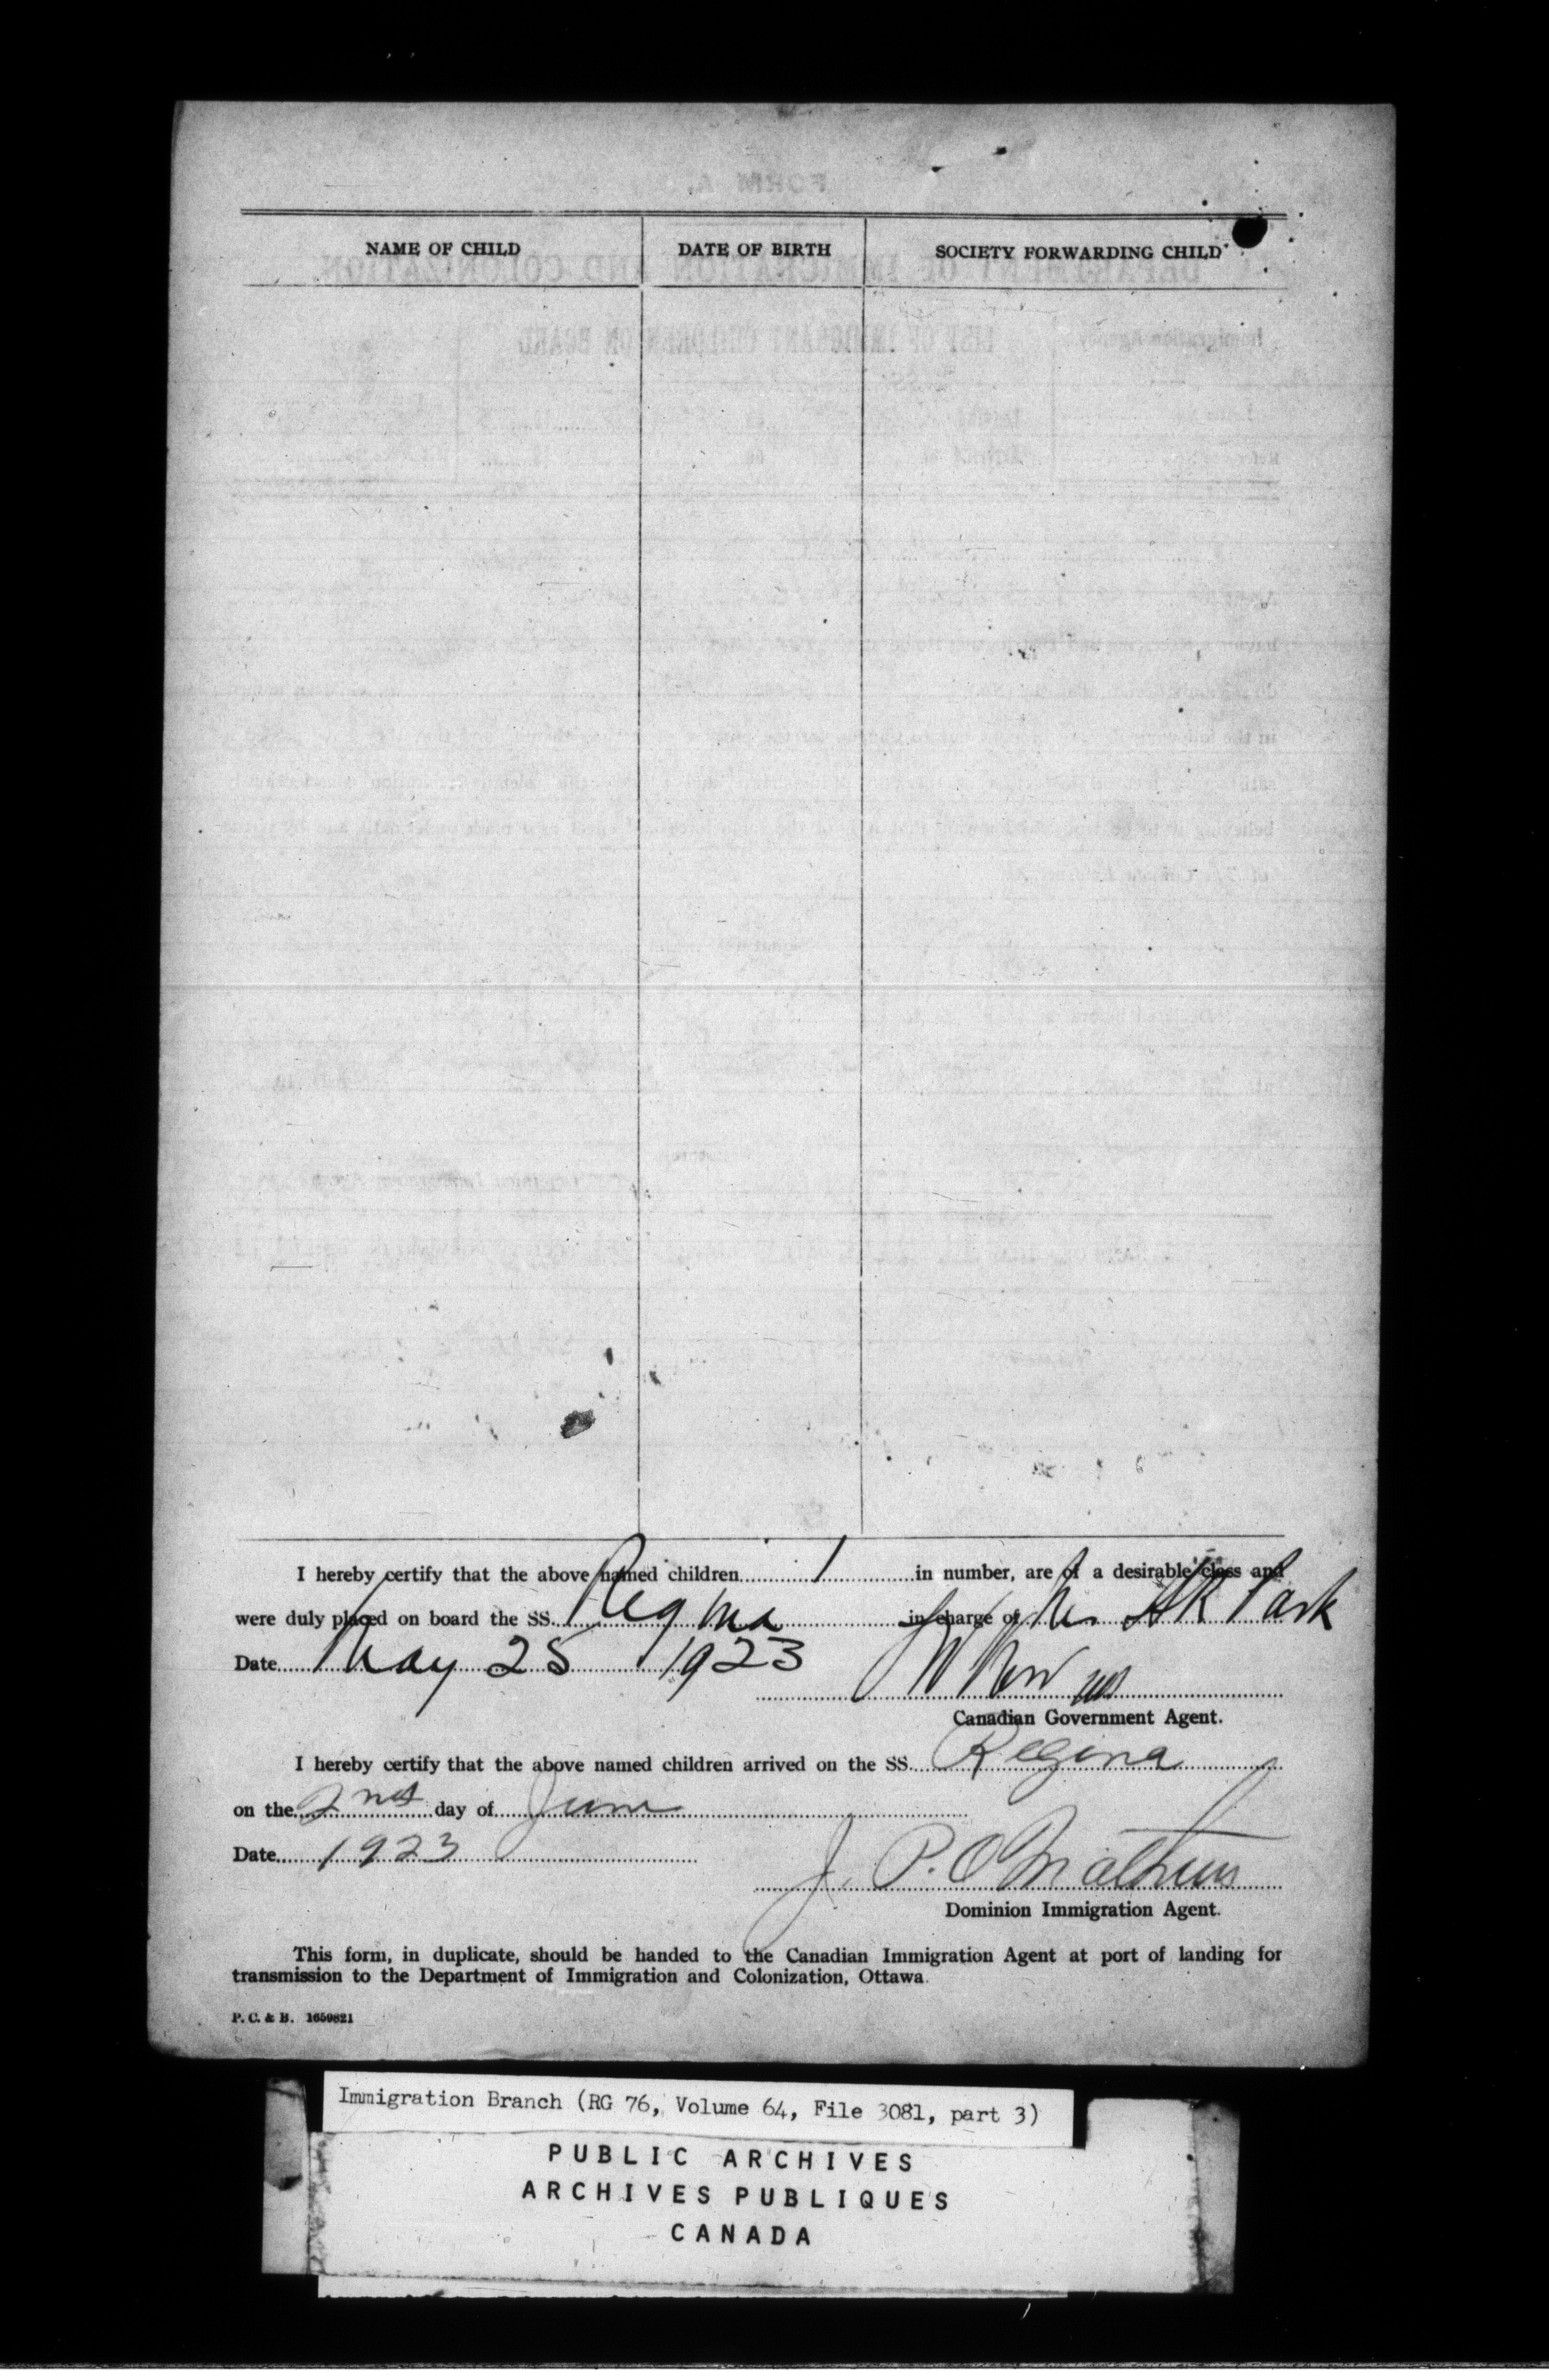 NAME OF CHILD DATE OF BIRTH SOCIETY FORWARDING CHILD
I hereby certify that the above named children 1 in number, are of a desirable class and
were duly placed on board the SS. Regina in charge of Mr. H R Park
Date May 25 1923
Canadian Government Agent.
I hereby certify that the above named children arrived on the SS. Regina
on the 2nd day of June
Date 1923
J. P. O
Dominion Immigration Agent.
This form, in duplicate, should be handed to the Canadian Immigration Agent at port of landing for
transmission to the Department of Immigration and Colonization, Ottawa.
P. C. & B. 1659821
Immigration Branch (RG 76, Volume 64, File 3081, part 3)
PUBLIC ARCHIVES
ARCHIVES PUBLIQUES
CANADA